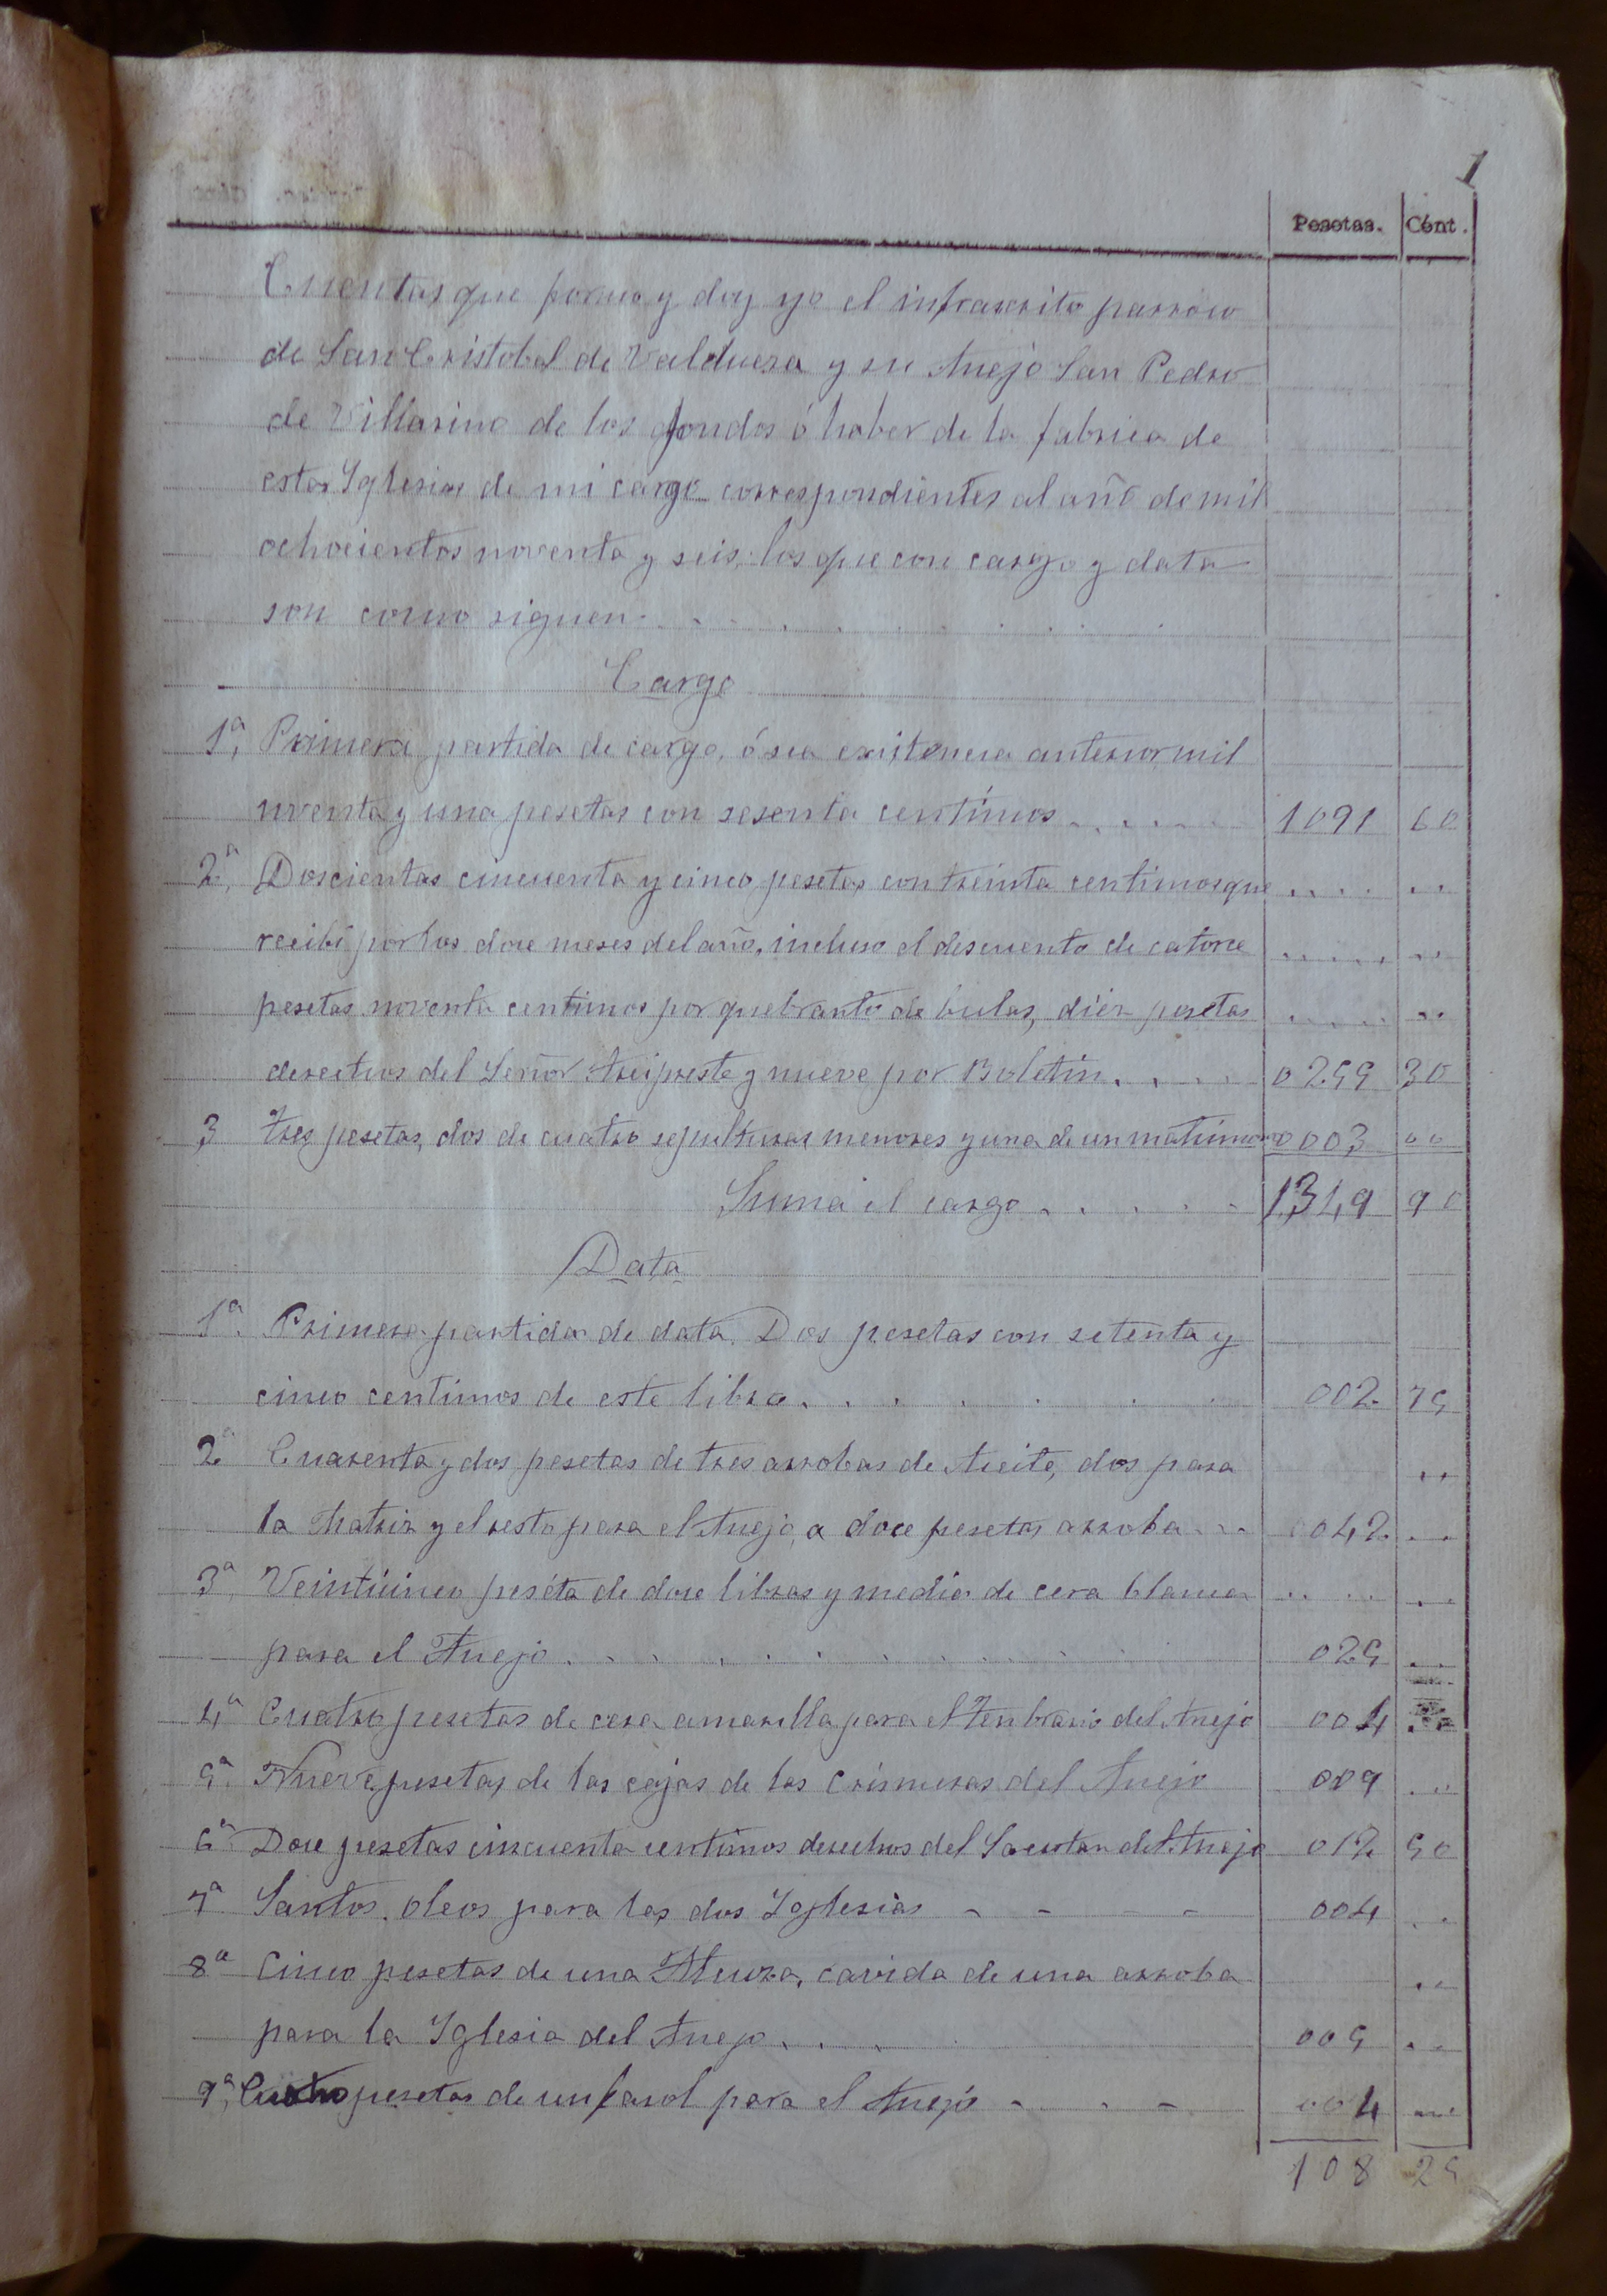 1
Pesetas. Cént.
Cuentas que formo y doy yo el infrascrito parroco
de San Cristobal de Valdueza y su Anejo San Pedro
de Villarino de los fondos ó haber de la fabrica de
estas Yglesias de mi cargo correspondientes al año de mil
ochocientos noventa y seis, los que con cargo y data
son como siguen
Cargo
1ª, Primera partida de cargo, ó sea existencia anterior mil
noventa y una pesetas con sesenta centimos 1091 60
2ª, Doscientas cincuenta y cinco pesetas con treinta centimos que
recibí por los doce meses del año, incluso el descuento de catorce
pesetas noventa centimos por quebranto de bulas, diez pesetas
derechos del Señor Arcipreste y nueve por Boletin 0255 30
3 tres pesetas, dos de cuatro sepulturas menores y una de un matrimonio 0003 00
Suma el cargo 1349 90
Data
1ª. Primera partida de data. Dos pesetas con setenta y
cinco centimos de este libro 002 75
2ª Cuarenta y dos pesetas de tres arrobas de Aceite, dos para
la Matriz y el resto para el Anejo, a doce pesetas arroba 0042
3ª, Veinticinco peseta de doce libras y media de cera blanca
para el Anejo 025
4ª Cuatro pesetas de cera amarilla para el Tenbrario del Anejo 004
5ª. Nueve pesetas de las cajas de las Crismeras del Anejo 009
6ª Doce pesetas cincuenta centimos derechos del Sacristan del Anejo 012 50
7ª Santos oleos para las dos Yglesias 004
8ª Cinco pesetas de una cavida de una arroba
para la Yglesia del Anejo 005
9ª, Cuatro pesetas de un farol para el Anejo 004
108 25